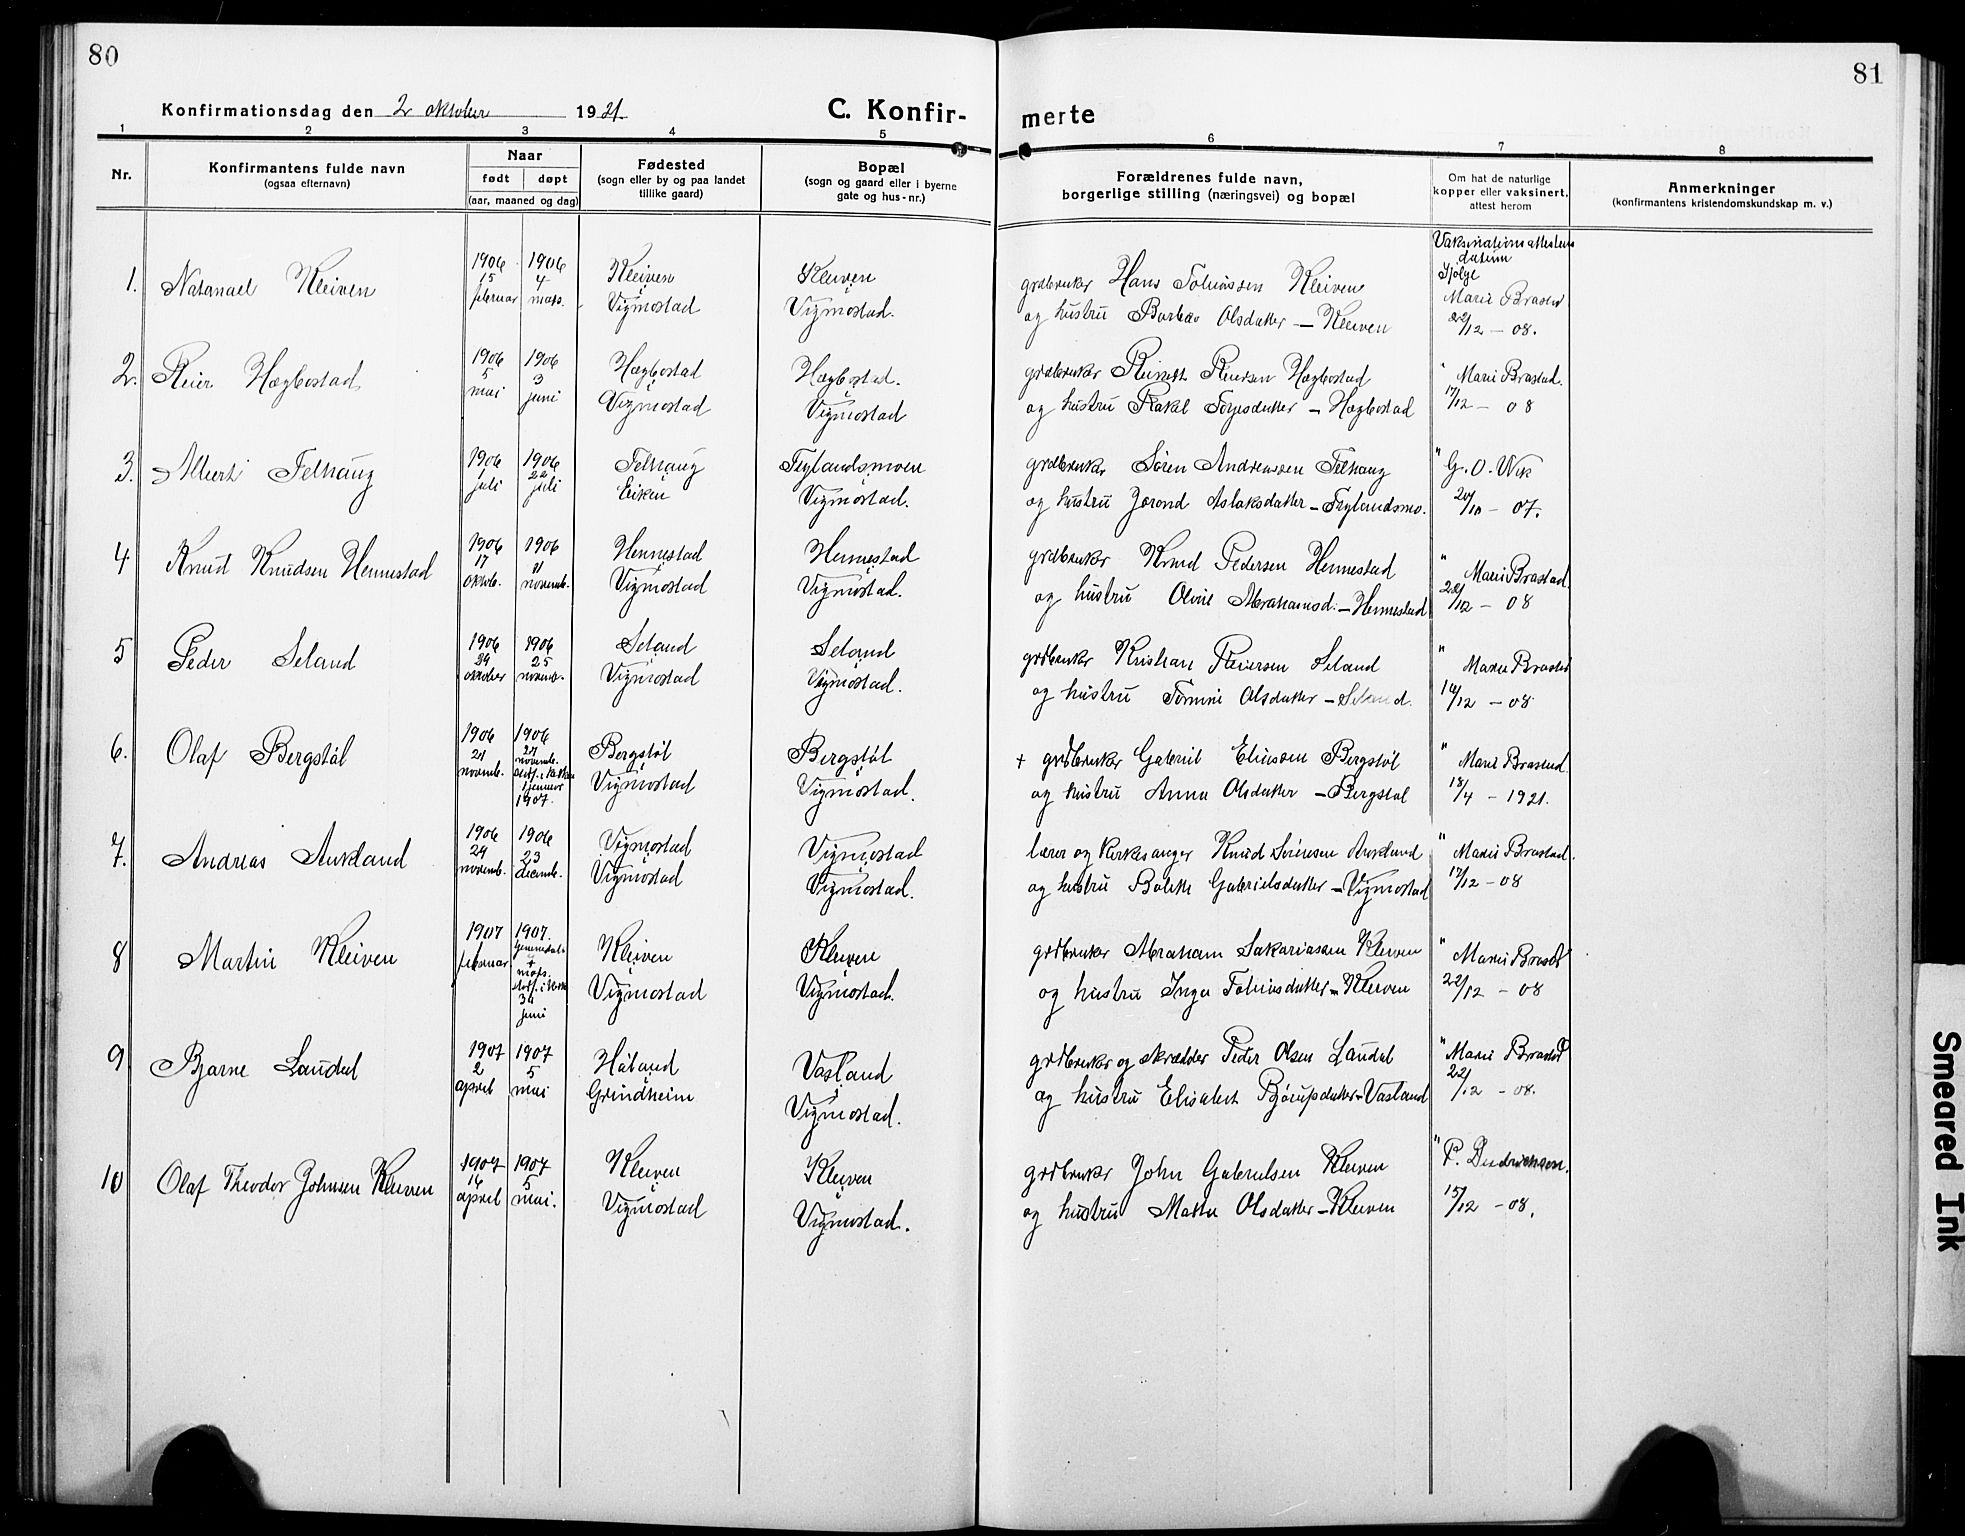 80
81
Konfirmationsdag den 2 oktober 1921.
C. Konfirmerte
1 2 3 4 5 6 7 8
Nr.
Konfirmantens fulde navn
(ogsaa efternavn)
Naar
født døpt
(aar, maaned og dag)
Fødested
(sogn eller by og paa landet
tillike gaard)
Bopæl
(sogn og gaard eller i byerne
gate og hus-nr.)
Forældrenes fulde navn,
borgerlige stilling (næringsvei) og bopæl
Om hat de naturlige
kopper eller vaksinert,
attest herom
Anmerkninger
(konfirmantens kristendomskundskap m. v.)
Vaksinationsattestens
datum
ifølge
1. Natanael Kleiven
1906 15 februar
1906 4 mars.
Kleiven
Vigmostad
Kleiven
Vigmostad.
grdbruker Hans Tobiassen Kleiven
og hustru Barbro Olsdatter – Kleiven
Marie Brastad
22/12 – 08.
2. Reier Hægbostad
1906 5 mai
1906 3 juni
Hægbostad
Vigmostad
Hægbostad.
Vigmostad
grdbruker Reiersen Hægbostad
og hustru Rakel Torjesdatter – Hægbostad
" Marie Brastad.
17/12 – 08
3. Albert Felhaug
1906 1 juli
1906 22 juli
Felhaug
Eiken
Fuglandsmoen
Vigmostad.
grdbruker Søren Andreassen Felhaug
og hustru Jorond Aslaksdatter –
" G. O. Wik
20/10 – 07.
4 Knud Knudsen Hennestad
1906 17 oktob.
1906 11 novemb.
Hennestad
Vigmostad
Hennestad
Vigmostad.
grdbruker Knud Pedersen Hennestad
og hustru Olvine Abrahamsd. – Hennestad
" Marie Brastad.
22/12 – 08
5 Peder Seland
1906 29 oktober
1906 25 novemb.
Seland
Vigmostad
Seland
Vigmostad.
grdbruker Kristian Reiersen Seland
og hustru Tomine Olsdatter – Seland.
" Marie Brastad
16/12 – 08
6. Olaf Bergstøl
1906 21 novemb.
1906 novemb.
stadf. i kirken
1 januar
1907.
Bergstøl
Vigmostad
Bergstøl
Vigmostad.
+ grdbruker Gabriel Eliassen Bergstøl
og hustru Anna Olsdatter – Bergstøl
" Marie Brastad
18/4 – 1921.
7. Andreas Aukland
1906 24 novemb.
1906 23 decemb.
Vigmostad
Vigmostad
Vigmostad
Vigmostad.
lærer og kirkesanger Knud Sørensen Aukland
og hustru Bolette Gabrielsdatter – Vigmostad
" Marie Brastad.
17/12 – 08
8 Martin Kleiven
1907 februar
1907. hjemmedøbt
mars.
stadf. i kirken
juni
Kleiven
Vigmostad
Kleiven
Vigmostad.
grdbruker Abraham Sakariassen Kleiven
og hustru Inga Tobiasdatter – Kleiven
" Marie Brastad
22/12 – 08
9 Bjarne Laudal
1907 2 april
1907 5 mai
Håland
Grindheim
Vasland
Vigmostad.
grdbruker og skrædder Peder Olsen Laudal
og hustru Elisabet Bjørupsdatter – Vasland
" Marie Brastad
22/12 – 08.
10 Olaf Theodor Johnsen Kleiven
1907 16 april
1907 5 mai.
Kleiven
Vigmostad
Kleiven
Vigmostad.
grdbruker John Gabrielsen Kleiven
og hustru Malta Olsdatter – Kleiven
" P. Diedrichsen.
15/12 – 08.
Smeared Ink